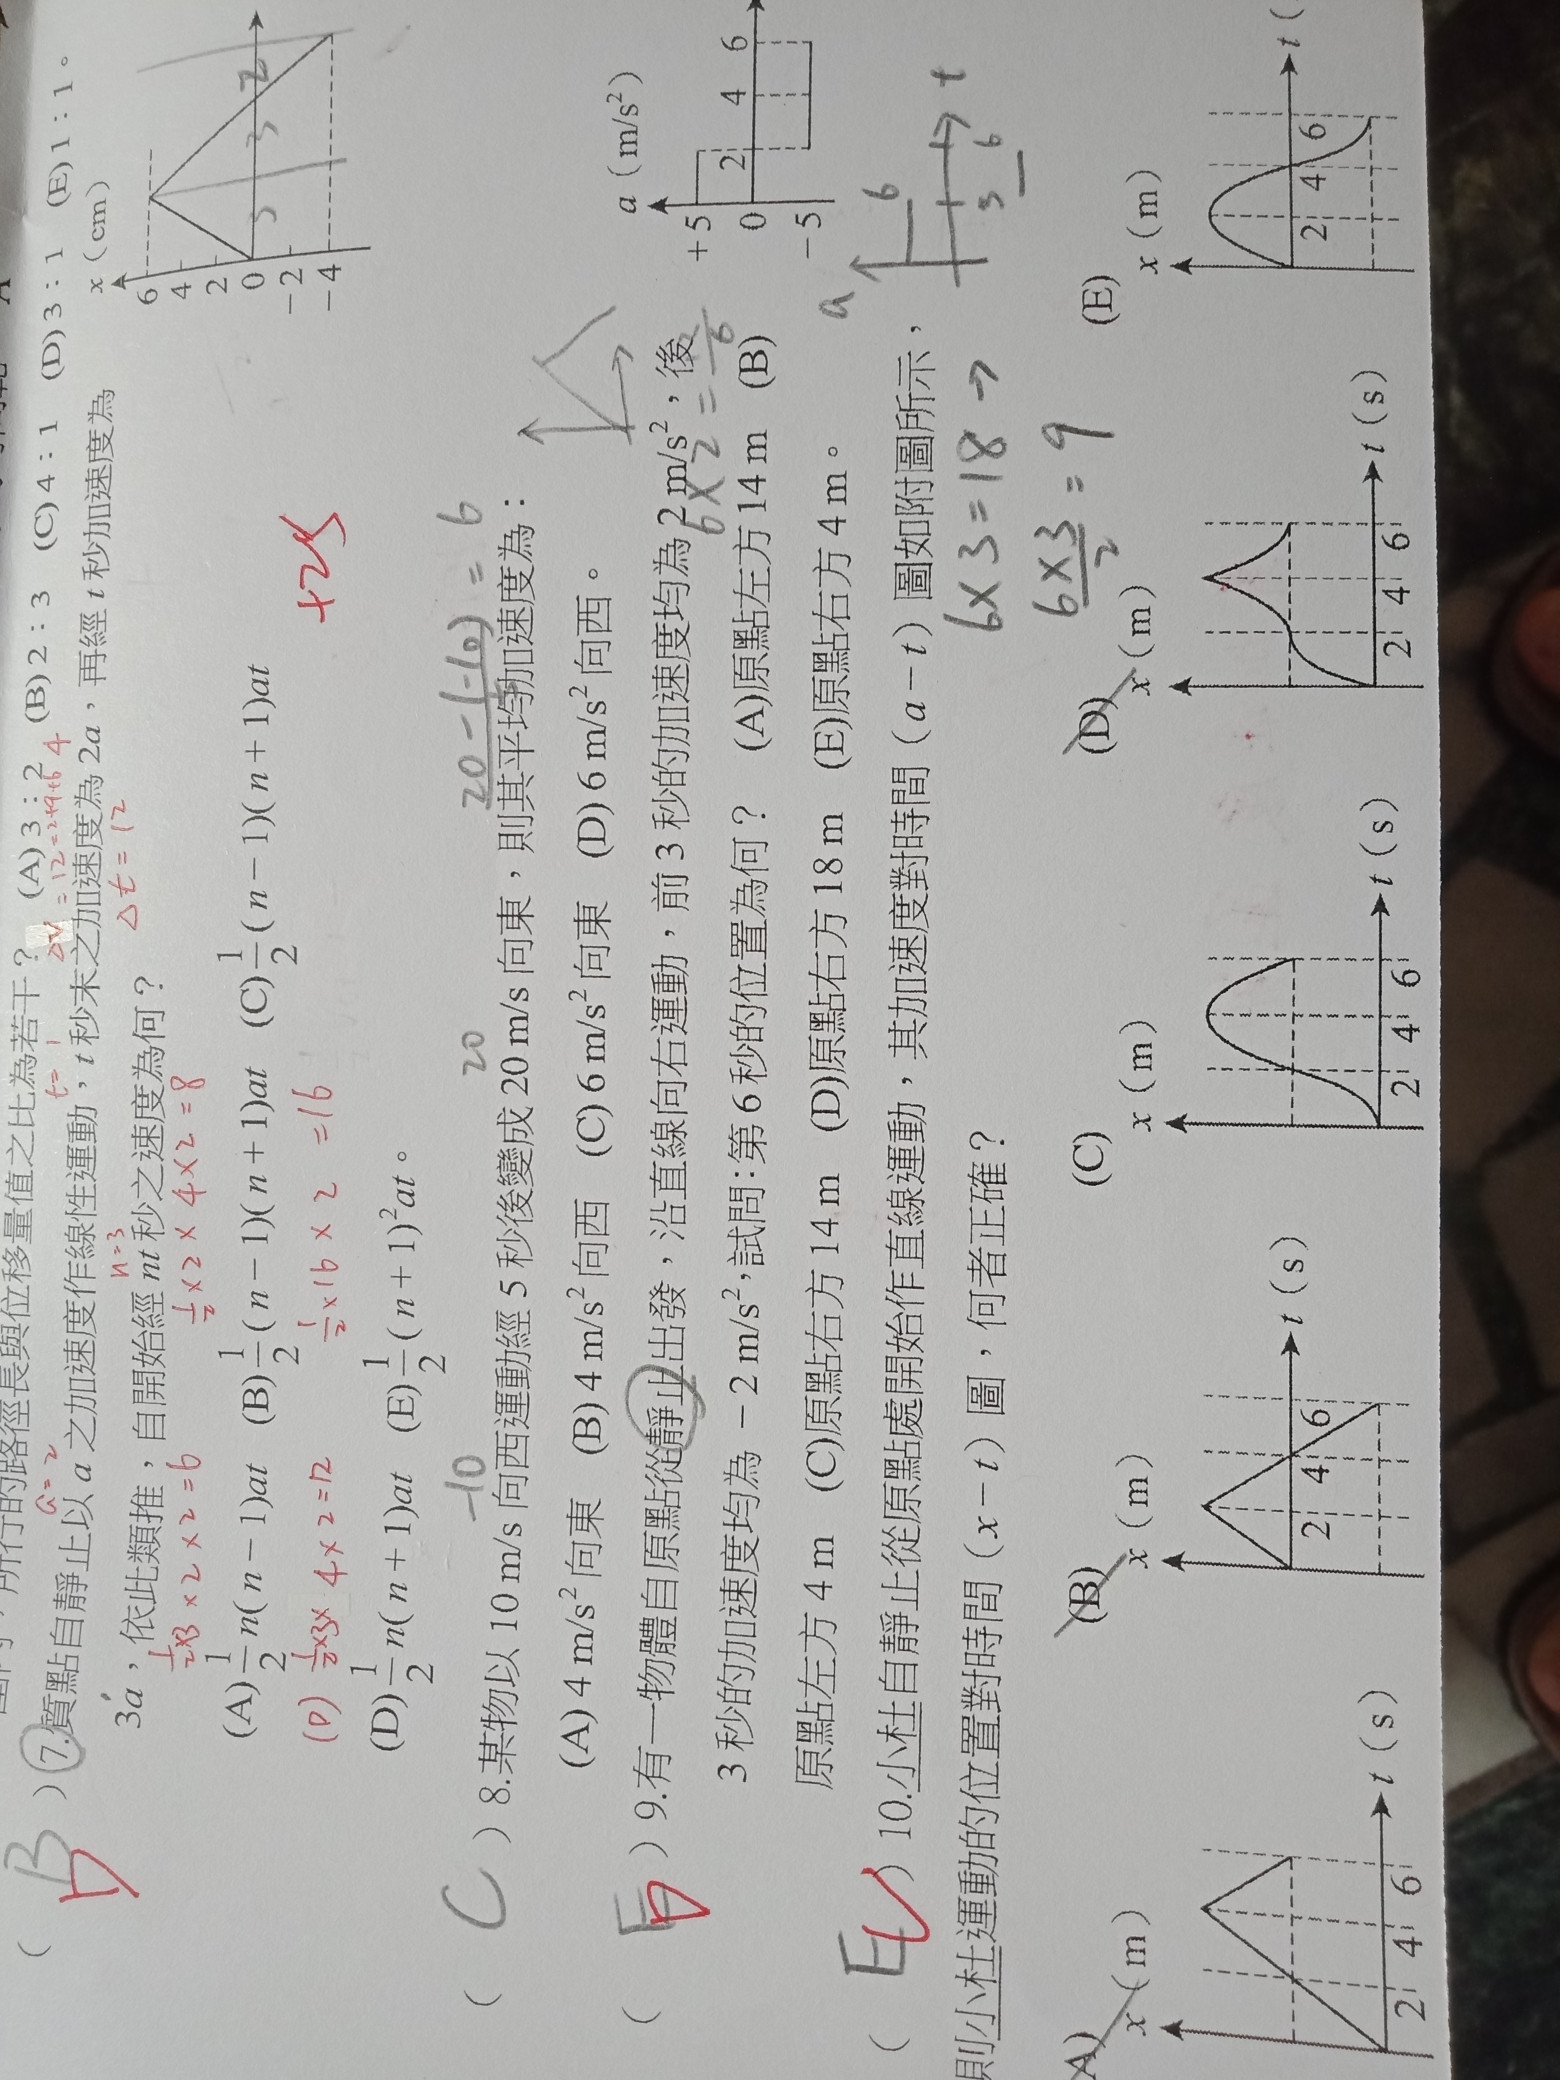 所行的路徑長與位移量值之比為若干？ (A) 3：2 (B) 2：3 (C) 4：1 (D) 3：1 (E) 1：1。
( B D ) 7.質點自靜止以 a 之加速度作線性運動，t 秒末之加速度為 2a，再經 t 秒加速度為
a=2 t=1
3a，依此類推，自開始經 nt 秒之速度為何？
n=3 Δt=12
(A) 1/2 n(n－1)at (B) 1/2 (n－1)(n＋1)at (C) 1/2 (n－1)(n＋1)at
1/2×2×4×2=8
(D) 1/2×3×4×2=12 1/2×16×2 =16
(D) 1/2 n(n＋1)at (E) 1/2 (n＋1)²at。
x（cm）
6
4
2
0
－2
－4
3 3 2
+25
-10 20 20-(-10)/5 = 6
( C ) 8.某物以 10 m/s 向西運動經 5 秒後變成 20 m/s 向東，則其平均加速度為：
(A) 4 m/s² 向東 (B) 4 m/s² 向西 (C) 6 m/s² 向東 (D) 6 m/s² 向西。
( E D ) 9.有一物體自原點從靜止出發，沿直線向右運動，前 3 秒的加速度均為 2 m/s²，後
3 秒的加速度均為 －2 m/s²，試問：第 6 秒的位置為何？ (A)原點左方 14 m (B)
原點左方 4 m (C)原點右方 14 m (D)原點右方 18 m (E)原點右方 4 m。
a（m/s²）
＋5
0 2 4 6
－5
a 6
3 6 t
( E C ) 10.小杜自靜止從原點處開始作直線運動，其加速度對時間（a－t）圖如附圖所示，
則小杜運動的位置對時間（x－t）圖，何者正確？
6×3=18
6×3/2=9
(A) x（m） 2 4 6 t（s）
(B) x（m） 2 4 6 t（s）
(C) x（m） 2 4 6 t（s）
(D) x（m） 2 4 6 t（s）
(E) x（m） 2 4 6 t（